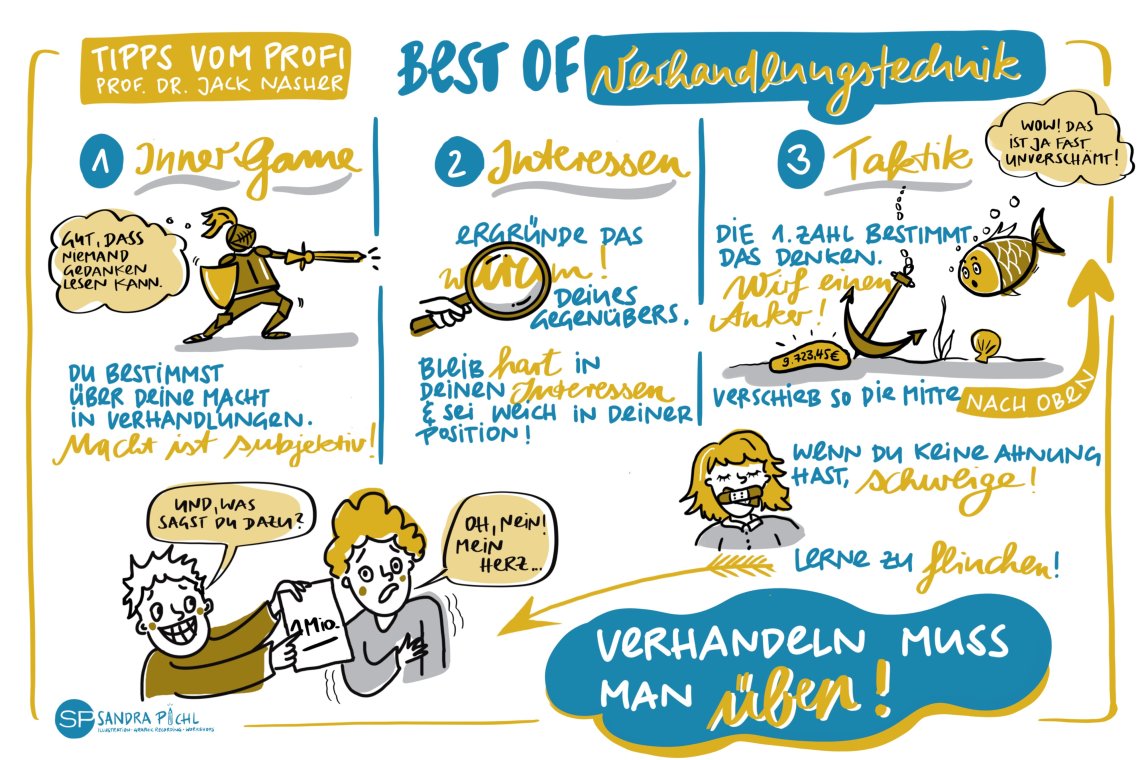 TIPPS VOM PROFI
PROF. DR. JACK NASHER
BEST OF Verhandlungstechnik
1 Inner Game
GUT, DASS
NIEMAND
GEDANKEN
LESEN KANN.
DU BESTIMMST
ÜBER DEINE MACHT
IN VERHANDLUNGEN.
Macht ist subjektiv!
2 Interessen
ERGRÜNDE DAS
warum!
DEINES
GEGENÜBERS.
BLEIB hart IN
DEINEN Interessen
& SEI WEICH IN DEINER
POSITION!
3 Taktik
WOW! DAS
IST JA FAST
UNVERSCHÄMT!
DIE 1. ZAHL BESTIMMT
DAS DENKEN.
Wirf einen
Anker!
9.723,45€
VERSCHIEB SO DIE MITTE
NACH OBEN
WENN DU KEINE AHNUNG
HAST, schweige!
LERNE ZU flinchen!
UND, WAS
SAGST DU DAZU?
OH, NEIN!
MEIN
HERZ...
1 Mio.
VERHANDELN MUSS
MAN üben!
SP SANDRA PICHL
ILLUSTRATION · GRAPHIC RECORDING · WORKSHOPS